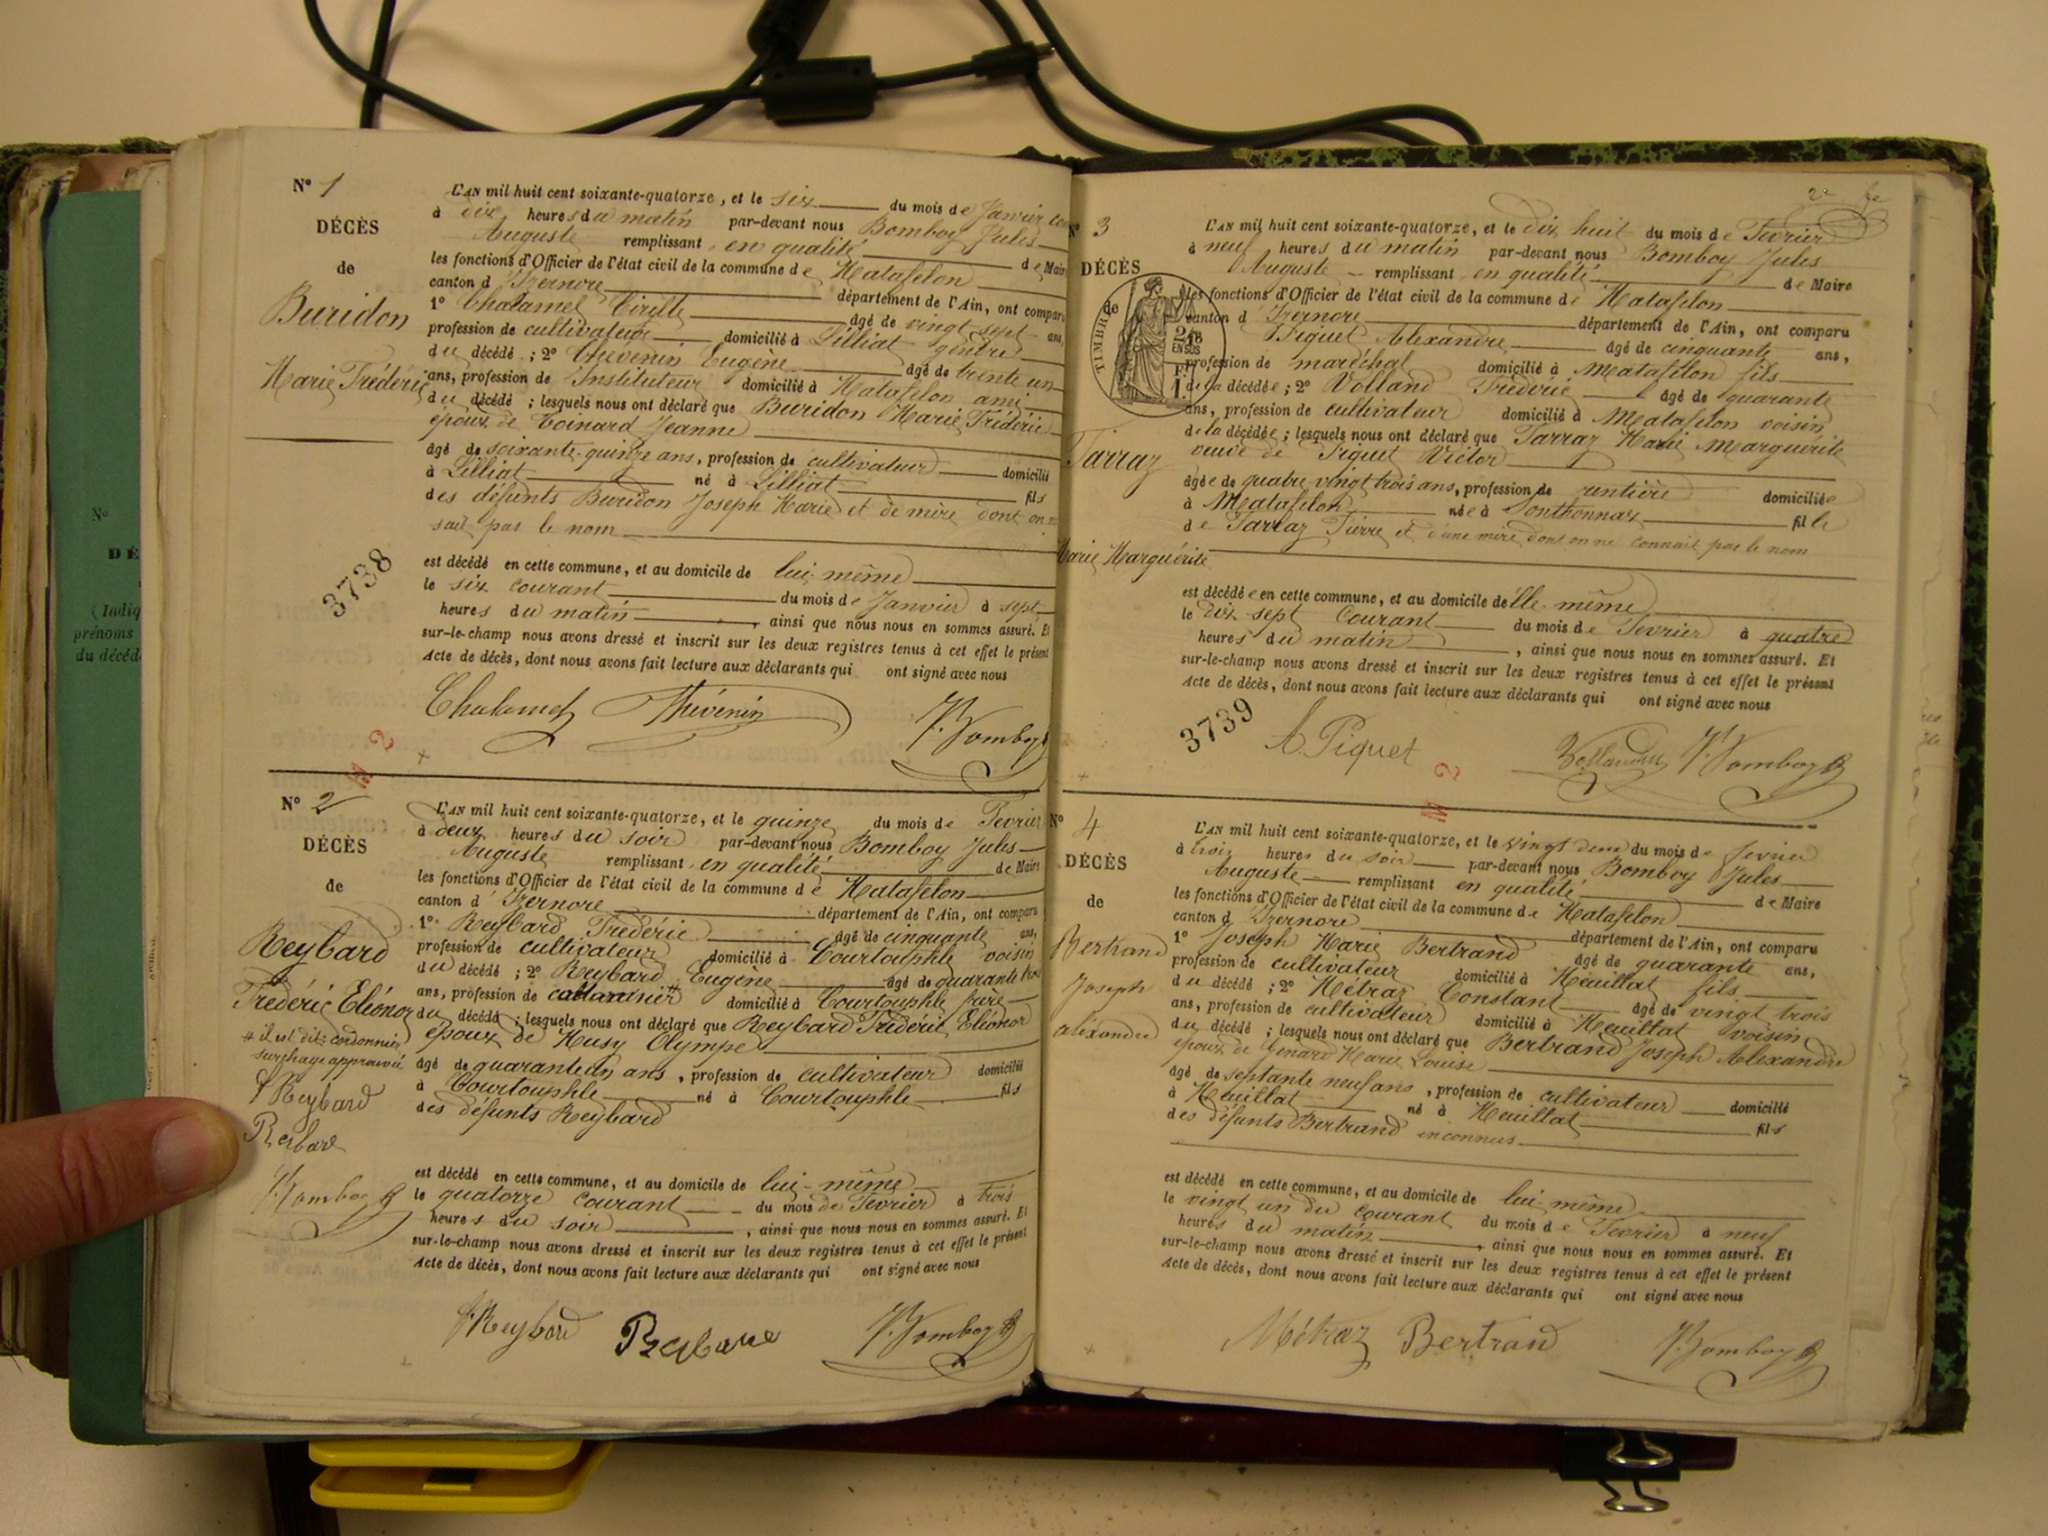 N° 1
DÉCÈS
de
Buridon
Marie Frédéric
L'AN mil huit cent soixante-quatorze, et le six du mois de Janvier
à dix heures du matin par-devant nous Bomboy Jules
Auguste remplissant en qualité de Maire
les fonctions d'Officier de l'état civil de la commune de Matafelon
canton d'Izernore département de l'Ain, ont comparu
1° Chalamel Cirille âgé de vingt sept ans,
profession de cultivateur domicilié à Lilliat gendre
du décédé ; 2° Thévenin Eugène âgé de trente un
ans, profession de Instituteur domicilié à Matafelon ami
du décédé ; lesquels nous ont déclaré que Buridon Marie Frédéric
époux de Coinard Jeanne
âgé de soixante-quinze ans, profession de cultivateur domicilié
à Lilliat né à Lilliat fils
des défunts Buridon Joseph Marie et de mère dont on ne
sait pas le nom
3738
est décédé en cette commune, et au domicile de lui-même
le six courant du mois de Janvier à sept
heures du matin, ainsi que nous nous en sommes assuré. Et
sur-le-champ nous avons dressé et inscrit sur les deux registres tenus à cet effet le présent
Acte de décès, dont nous avons fait lecture aux déclarants qui ont signé avec nous
Chalamel Thévenin J. Bomboy
M 2
N° 2
DÉCÈS
de
Reybard
Frédéric Eléonor
# il est dit: cordonnier
surchage approuvé
Reybard
Reybard
J. Bomboy
L'AN mil huit cent soixante-quatorze, et le quinze du mois de Fevrier
à deux heures du soir par-devant nous Bomboy Jules
Auguste remplissant en qualité de Maire
les fonctions d'Officier de l'état civil de la commune de Matafelon
canton d'Izernore département de l'Ain, ont comparu
1° Reybard Frédéric âgé de cinquante ans,
profession de cultivateur domicilié à Courtouphle voisin
du décédé ; 2° Reybard Eugène âgé de quarante trois
ans, profession de # domicilié à Courtouphle
du décédé ; lesquels nous ont déclaré que Reybard Frédéric Eléonor
époux de Husy Olympe
âgé de quarante un ans, profession de cultivateur domicilié
à Courtouphle né à Courtouphle fils
des défunts Reybard
est décédé en cette commune, et au domicile de lui-même
le quatorze courant du mois de Fevrier à trois
heures du soir, ainsi que nous nous en sommes assuré. Et
sur-le-champ nous avons dressé et inscrit sur les deux registres tenus à cet effet le présent
Acte de décès, dont nous avons fait lecture aux déclarants qui ont signé avec nous
Reybard Reybard J. Bomboy
N° 3
DÉCÈS
de
TIMBRE
Tarraz
Marie Marguérite
L'AN mil huit cent soixante-quatorze, et le dix huit du mois de Fevrier
à neuf heures du matin par-devant nous Bomboy Jules
Auguste remplissant en qualité de Maire
les fonctions d'Officier de l'état civil de la commune de Matafelon
canton d'Izernore département de l'Ain, ont comparu
Piquet Alexandre âgé de cinquante ans,
profession de maréchal domicilié à Matafelon fils
de la décédée ; 2° Volland Frédéric âgé de quarante
ans, profession de cultivateur domicilié à Matafelon voisin
de la décédée ; lesquels nous ont déclaré que Tarraz Marie Marguérite
veuve de Piquet Victor
âgée de quatre vingt trois ans, profession de rentière domiciliée
à Matafelon née à Sonthonnax fille
de Tarraz Pierre et d'une mère dont on ne connait pas le nom
est décédée en cette commune, et au domicile d'elle-même
le dix sept courant du mois de Fevrier à quatre
heures du matin, ainsi que nous nous en sommes assuré. Et
sur-le-champ nous avons dressé et inscrit sur les deux registres tenus à cet effet le présent
Acte de décès, dont nous avons fait lecture aux déclarants qui ont signé avec nous
3739
A. Piquet Volland J. Bomboy
M 2
N° 4
DÉCÈS
de
Bertrand
Joseph
alexandre
L'AN mil huit cent soixante-quatorze, et le vingt deux du mois de fevrier
à trois heures du soir par-devant nous Bomboy Jules
Auguste remplissant en qualité de Maire
les fonctions d'Officier de l'état civil de la commune de Matafelon
canton d'Izernore département de l'Ain, ont comparu
1° Joseph Marie Bertrand âgé de quarante ans,
profession de cultivateur domicilié à Heuillat fils
du décédé ; 2° Métraz Constant âgé de vingt trois
ans, profession de cultivateur domicilié à Heuillat voisin
du décédé ; lesquels nous ont déclaré que Bertrand Joseph Alexandre
époux de Marie Louise
âgé de septante neuf ans, profession de cultivateur domicilié
à Heuillat né à Heuillat fils
des défunts Bertrand inconnus
est décédé en cette commune, et au domicile de lui-même
le vingt un du courant du mois de Fevrier à neuf
heures du matin, ainsi que nous nous en sommes assuré. Et
sur-le-champ nous avons dressé et inscrit sur les deux registres tenus à cet effet le présent
Acte de décès, dont nous avons fait lecture aux déclarants qui ont signé avec nous
Métraz Bertrand J. Bomboy